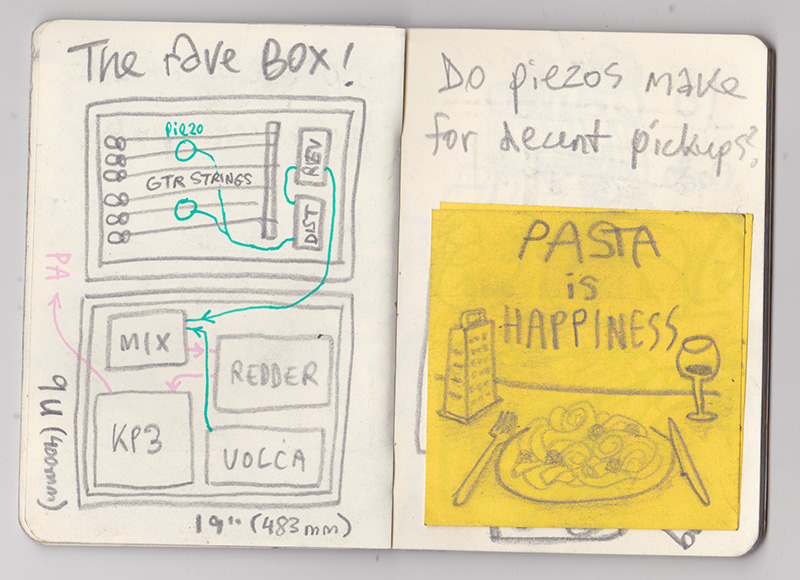 The rave BOX!
Piezo
GTR STRINGS
REV
DIST
PA
MIX
REDDER
KP3
VOLCA
9U (400mm)
19" (483mm)
Do piezos make
for decent pickups?
PASTA
is
HAPPINESS